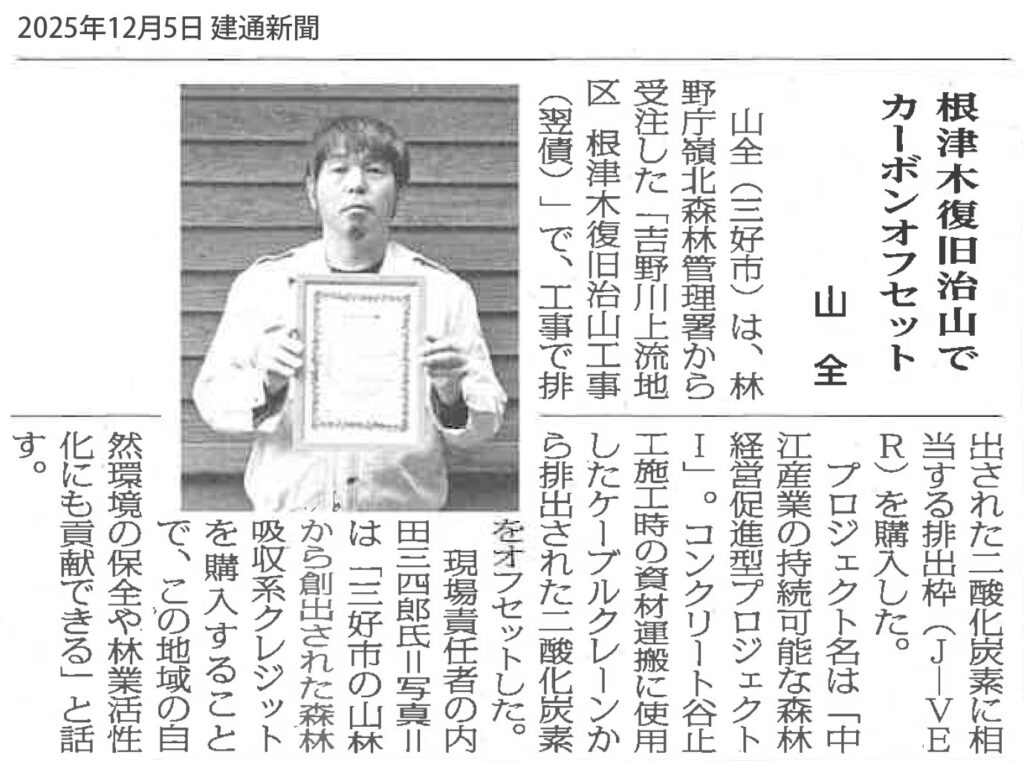 2025年12月5日 建通新聞
根津木復旧治山で
カーボンオフセット
山全
山全（三好市）は、林
野庁嶺北森林管理署から
受注した「吉野川上流地
区 根津木復旧治山工事
（翌債）」で、工事で排
出された二酸化炭素に相
当する排出枠（J―VE
R）を購入した。
プロジェクト名は「中
江産業の持続可能な森林
経営促進型プロジェクト
Ⅰ」。コンクリート谷止
工施工時の資材運搬に使用
したケーブルクレーンか
ら排出された二酸化炭素
をオフセットした。
現場責任者の内
田三四郎氏＝写真＝
は「三好市の山林
から創出された森林
吸収系クレジット
を購入すること
で、この地域の自
然環境の保全や林業活性
化にも貢献できる」と話
す。